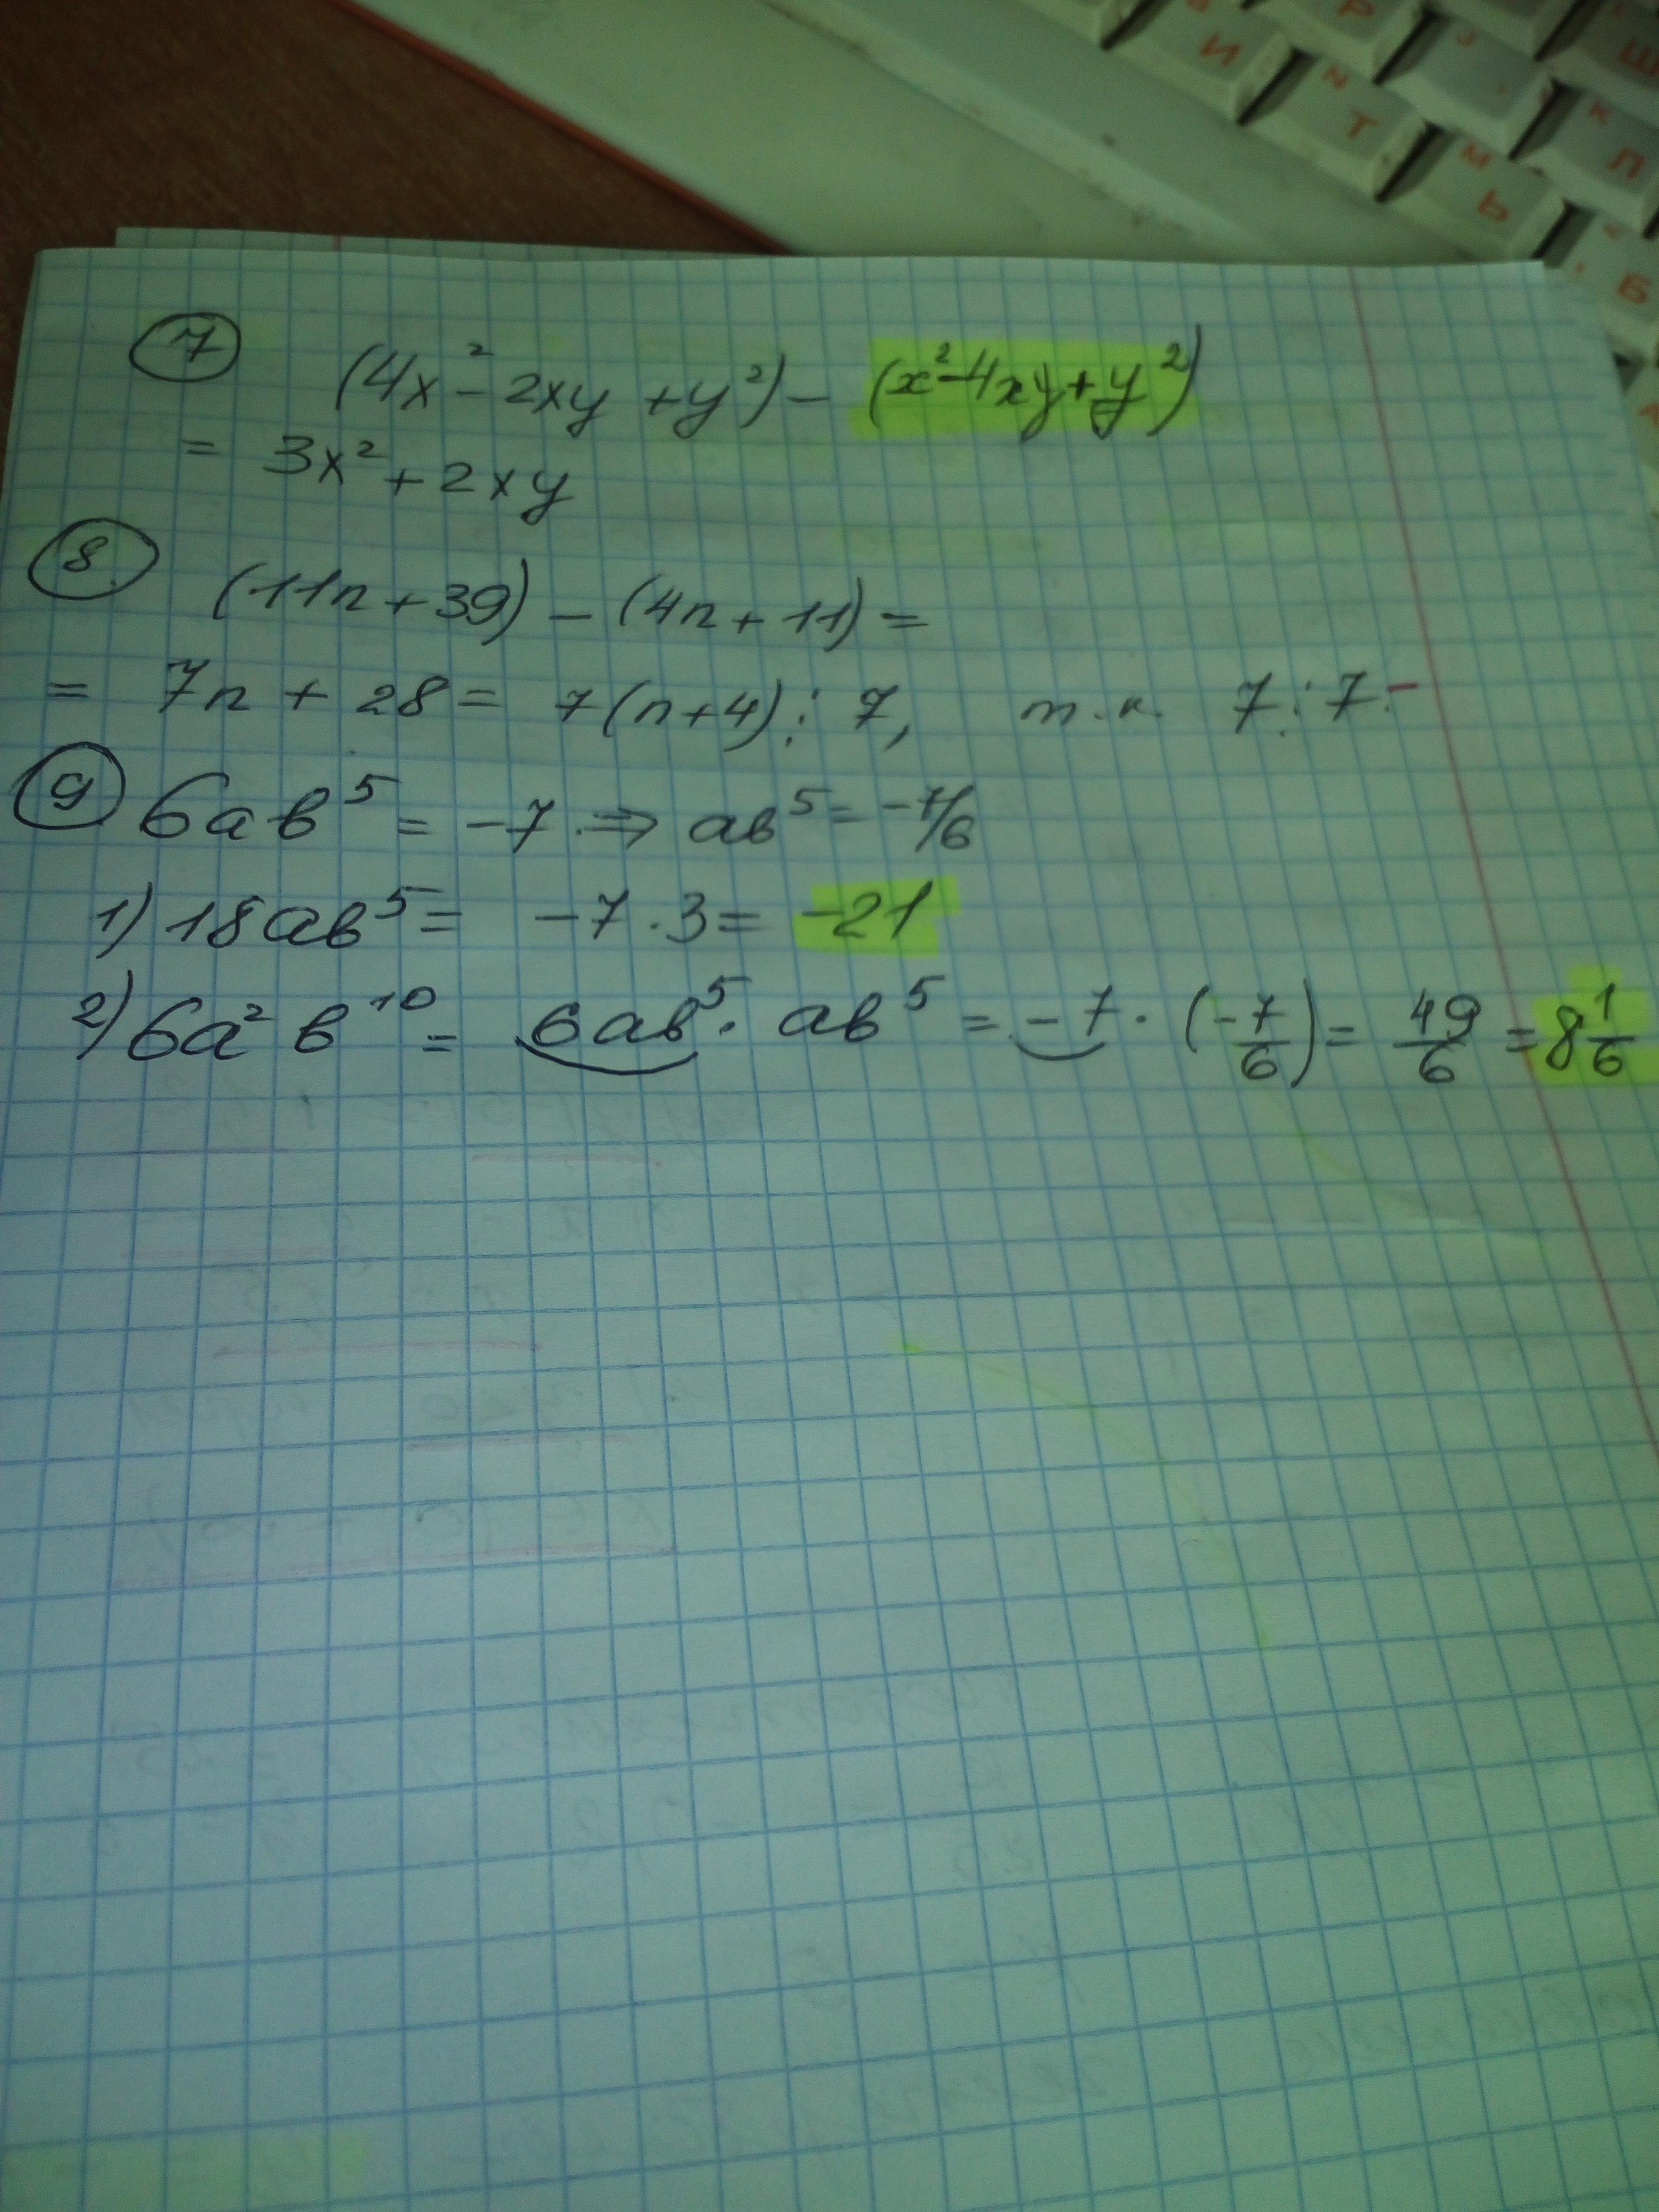 В И Р Ш
N Т J К Л
М Ь < Б
7 (4x² - 2xy + y²) - (x² - 4xy + y²)
= 3x² + 2xy
8. (11n + 39) - (4n + 11) =
= 7n + 28 = 7(n+4) ⋮ 7, т.к. 7 ⋮ 7.
9 6ab⁵ = -7 ⇒ ab⁵ = -7/6
1) 18ab⁵ = -7 · 3 = -21
2) 6a² b¹⁰ = 6ab⁵ · ab⁵ = -7 · (-7/6) = 49/6 = 8 1/6